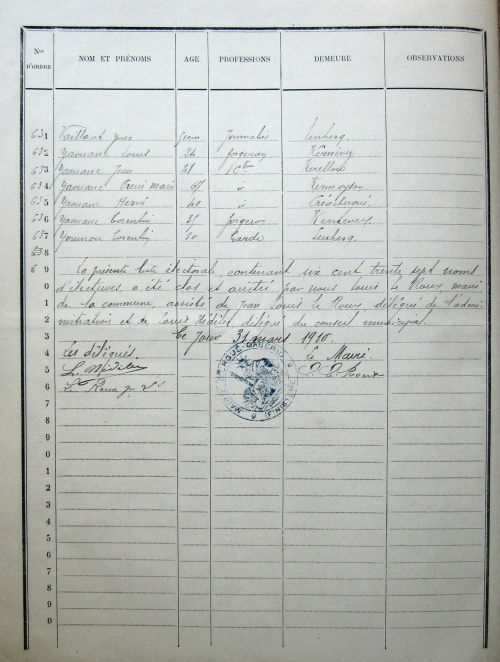 Nos D'ORDRE NOM ET PRÉNOMS AGE PROFESSIONS DEMEURE OBSERVATIONS
631 Vaillant Yves Lenhesq.
632 Yaouanc Louis 26 forgeron Kernévez
633 Yaouanc Jean 48
634 Yaouanc René Marie 67 " Kermoysan.
635 Yaouanc Hervé 40 "
636 Yaouanc Corentin 35 forgeron Kernévez
637 Younou Corentin 50 Garde Lenhesq.
8
6 9 La présente liste électorale, contenant six cent trente sept noms
0 d'électeurs, a été clos et arrêtée par nous Louis Le Roux maire
1 de la commune, assisté de Jean Louis Le Roux délégué de l'admi-
2 nistration et de Louis Médélec, délégué du conseil municipal.
3 Ce jour 31 mars 1910.
4 Les délégués. Le Maire.
5 L. Médélec
6 Le Roux
7
8
9
0
1
2
3
4
5
6
7
8
9
0